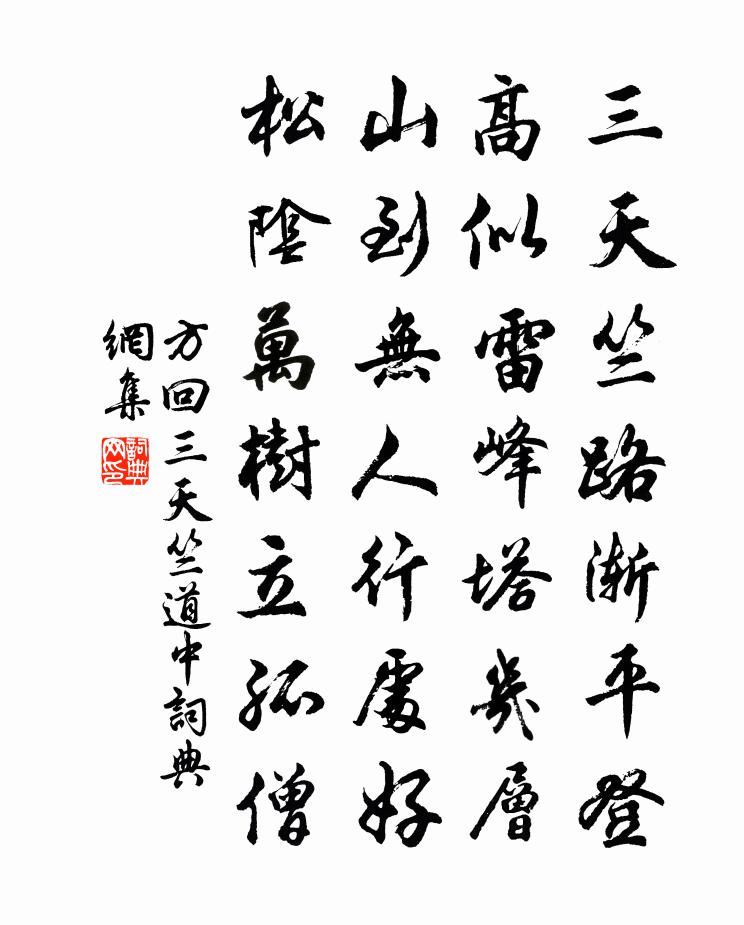 三天竺路漸平登
高似雷峰塔幾層
山到無人行處好
松陰萬樹立孤僧
方回三天竺道中詞典
網集
詞典
网印